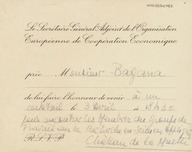 Le Secrétaire Général Adjoint de l'Organisation
Européenne de Coopération Economique
prie Monsieur Bagiana
de lui faire l'honneur de venir à un
cocktail le 3 Avril à 18h30
pour rencontrer les Membres des Groupes de
Travail sur la Recherche
R.S.V.P. Château de la Muette